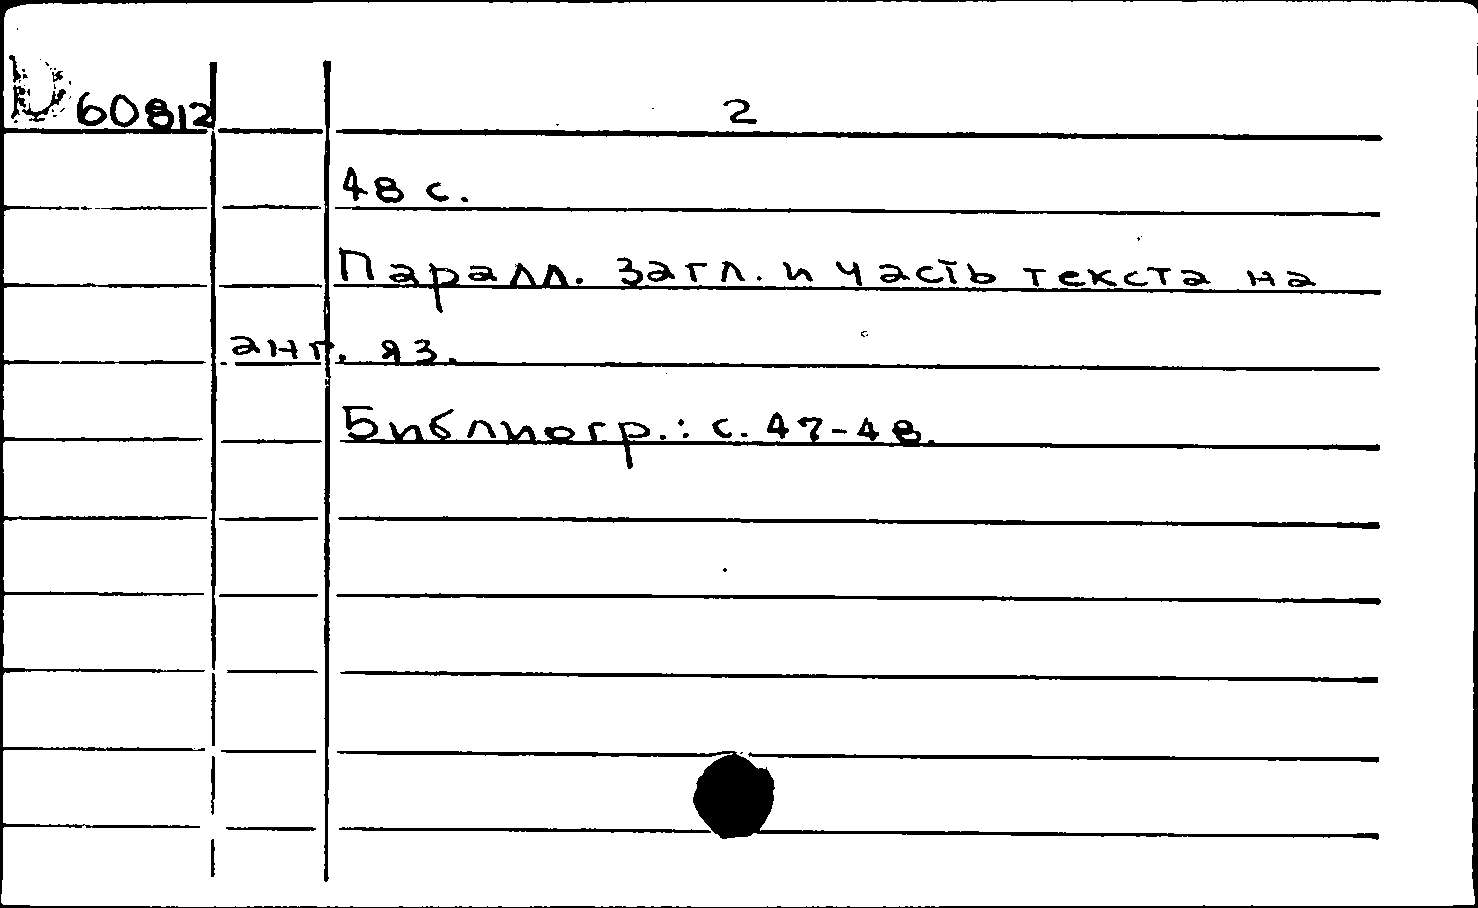 D 60812 2
48 с.
Паралл. загл. и часть текста на
анг. яз.
Библиогр.: с. 47-48.